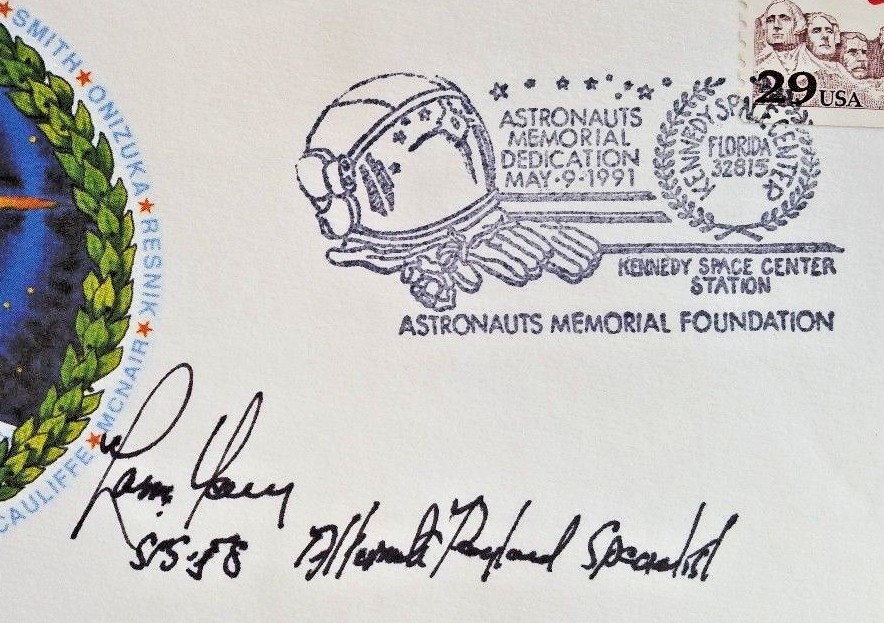 SMITH ★ ONIZUKA ★ RESNIK ★ MCNAIR ★ CAULIFFE
29 USA
ASTRONAUTS
MEMORIAL
DEDICATION
MAY-9-1991
KENNEDY SPACE CENTER
FLORIDA
32815
KENNEDY SPACE CENTER
STATION
ASTRONAUTS MEMORIAL FOUNDATION
Larry Young
STS-58 Alternate Payload Specialist